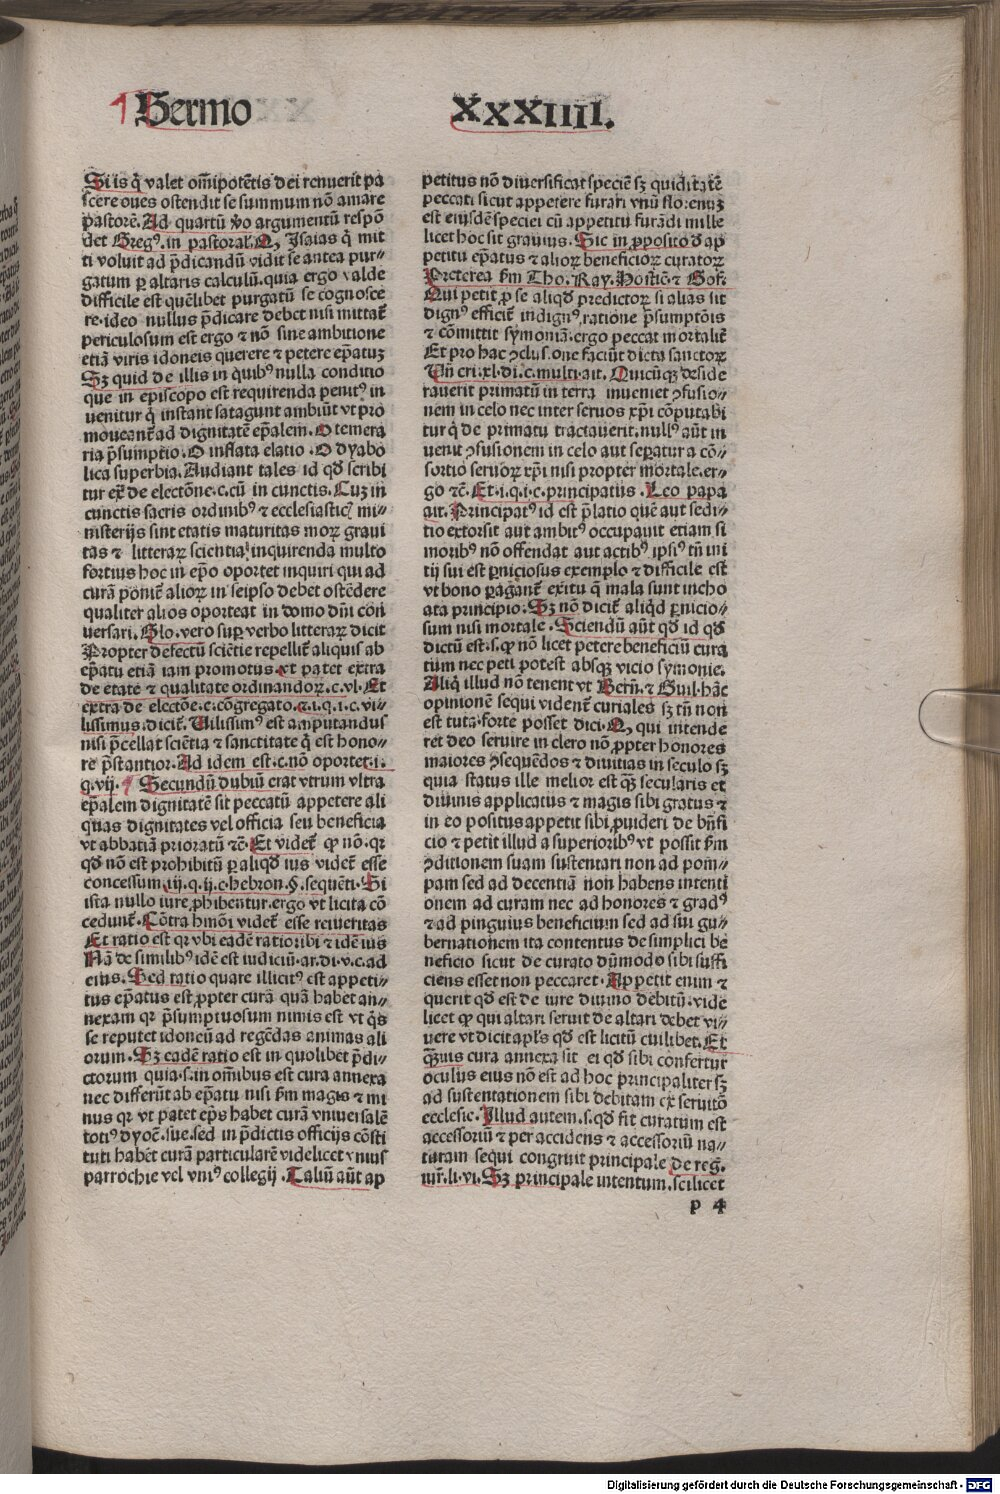 Sermo XXXIIII.
Si is q̄ valet om̄ipotētis dei renuerit pa
scere oues ostendit se summum nō amare
pastorē. Ad quartū v̊o argumentū respō
det Greg⁹. in pastoral. Q, Isaias q̄ mit
ti voluit ad p̄dicandū vidit se antea pur⸗
gatum ꝑ altaris calculū. quia ergo valde
difficile est quēlibet purgatū se cognosce
re. ideo nullus p̄dicare debet nisi mittat̄
periculosum est ergo ⁊ nō sine ambitione
etiā viris idoneis querere ⁊ petere ep̄atuꝫ
Sꝫ quid de illis in q̄ib⁹ nulla conditio
que in episcopo est requirenda penit⁹ in
uenitur q̄ instant satagunt ambiūt vt pro
moueant̄ ad dignitatē ep̄alem. O temera
ria p̄sumptio. O inflata elatio. O dyabo
lica superbia. Audiant tales id qḋ scribi
tur ex̄ de electōne. c. cū in cunctis. Cuꝫ in
cunctis sacris ordinib⁹ ⁊ ecclesiastic̄ mi⸗
nisterijs sint etatis maturitas moꝝ graui
tas ⁊ litteraꝝ scientia inquirenda multo
fortius hoc in ep̄o oportet inquiri qui ad
curā ponit̄ alioꝝ in seipso debet ostēdere
qualiter alios oporteat in domo dn̄i con
uersari. Glo. vero suꝑ verbo litteraꝝ dicit
Propter defectū sciētie repellit̄ aliquis ab
ep̄atu etiā iam promotus. vt patet extra
de etate ⁊ qualitate ordinandoꝝ. c. vl. Et
extra de electōe. c. cōgregato. ⁊. i. q. i. c. vi⸗
lissimus. dicit̄. Uilissim⁹ est amputandus
nisi p̄cellat sciētia ⁊ sanctitate q̄ est hono⸗
re p̄stantior. Ad idem est. c. nō oportet. i.
q. vij. ¶ Secundū dubiū erat vtrum vltra
ep̄alem dignitatē sit peccatū appetere ali
quas dignitates vel officia seu beneficia
vt abbatiā prioratū ⁊c̄. Et videt̄ ꝙ nō. qꝛ
qḋ nō est prohibitū ꝑ aliqḋ ius videt̄ esse
concessum. iij. q. ij. c. hebron. §. sequēti. Si
ista nullo iure ꝓhibentur. ergo vt licita cō
cedunt̄. Cōtra hmōi videt̄ esse re veritas
Et ratio est qꝛ vbi eadē ratio ibi ⁊ idē ius
Nā de similib⁹ idē est iudiciū. ar. di. v. c. ad
eius. Sed ratio quare illicit⁹ est appeti⸗
tus ep̄atus est ꝓpter curā quā habet an⸗
nexam qꝛ p̄sumptuosum nimis est vt q̄s
se reputet idoneū ad regēdas animas ali
orum. Sꝫ eadē ratio est in quolibet p̄di⸗
ctorum quia. s. in om̄ibus est cura annexa
nec differūt ab ep̄atu nisi ẜm magis ⁊ mi
nus qꝛ vt patet ep̄s habet curā vniuersalē
toti⁹ dyoc̄. sue. sed in p̄dictis officijs cōsti
tuti habēt curā particularē videlicet vnius
parrochie vel vni⁹ collegij. Taliū aūt ap
petitus nō diuersificat speciē sꝫ quiditatē
peccati sicut appetere furari vnū flo. enuꝫ
est eiusdē speciei cū appetitu furādi mille
licet hoc sit grauius. Sic in ꝓposito ḋ ap
petitu ep̄atus ⁊ alioꝝ beneficioꝝ curatoꝝ
Preterea ẜm Tho. Ray. Hostiē. ⁊ Gof.
Qui petit ꝓ se aliqḋ predictoꝝ si alias sit
dign⁹ efficit̄ indign⁹. ratione p̄sumptōis
⁊ cōmittit symoniā. ergo peccat mortalit̄
Et pro hac ꝯclusione faciūt dicta sanctoꝝ
Uñ cri. xl. di. c. multi. ait. Quicūqꝫ deside
rauerit primatū in terra inueniet ꝯfusio⸗
nem in celo nec inter seruos xp̄i cōputabi
tur q̄ de primatu tractauerit. null⁹ aūt in
uenit ꝯfusionem in celo aut seꝑatur a cō⸗
sortio seruoꝝ xp̄i nisi propter mortale. er⸗
go ⁊c̄. Et. i. q. i. c. principatus. Leo papa
ait. Principat⁹ id est p̄latio quē aut sedi⸗
tio extorsit aut ambit⁹ occupauit etiam si
morib⁹ nō offendat aut actib⁹ ip̄si⁹ tn̄ ini
tij sui est ꝑniciosus exemplo ⁊ difficile est
vt bono ꝑagant̄ exitu q̄ mala sunt incho
ata principio. Sꝫ nō dicit̄ aliqḋ ꝑnicio⸗
sum nisi mortale. Sciendū aūt qḋ id qḋ
dictū est. s. ꝙ nō licet petere beneficiū cura
tum nec peti potest absqꝫ vicio symonie.
Aliq̄ illud nō tenent vt Bern̄. ⁊ Guil. hāc
opinionē sequi vident̄ curiales sꝫ tn̄ non
est tuta. forte posset dici. Q, qui intende
ret deo seruire in clero nō ꝓpter honores
maiores ꝯsequēdos ⁊ diuitias in seculo sꝫ
quia status ille melior est qꝫ secularis et
diuinis applicatus ⁊ magis sibi gratus ⁊
in eo positus appetit sibi ꝓuideri de bn̄fi
cio ⁊ petit illud a superiorib⁹ vt possit ẜm
ꝯditionem suam sustentari non ad pom⸗
pam sed ad decentiā non habens intenti
onem ad curam nec ad honores ⁊ grad⁹
⁊ ad pinguius beneficium sed ad sui gu⸗
bernationem ita contentus de simplici be
neficio sicut de curato dūmodo sibi suffi
ciens esset non peccaret. Appetit enim ⁊
querit qḋ est de iure diuino debitū. vide
licet ꝙ qui altari seruit de altari debet vi⸗
uere vt dicit apl̄s qḋ est licitū cuilibet. Et
q̄uis cura annexa sit ei qḋ sibi confertur
oculus eius nō est ad hoc principaliter sꝫ
ad sustentationem sibi debitam ex seruitō
ecclesie. Illud autem. s. qḋ sit curatum est
accessoriū ⁊ per accidens ⁊ accessoriū na⸗
turam sequi congruit principale de reḡ.
iur̄. li. vi. Sꝫ principale intentum. scilicet
p 4
Digitalisierung gefördert durch die Deutsche Forschungsgemeinschaft - DFG